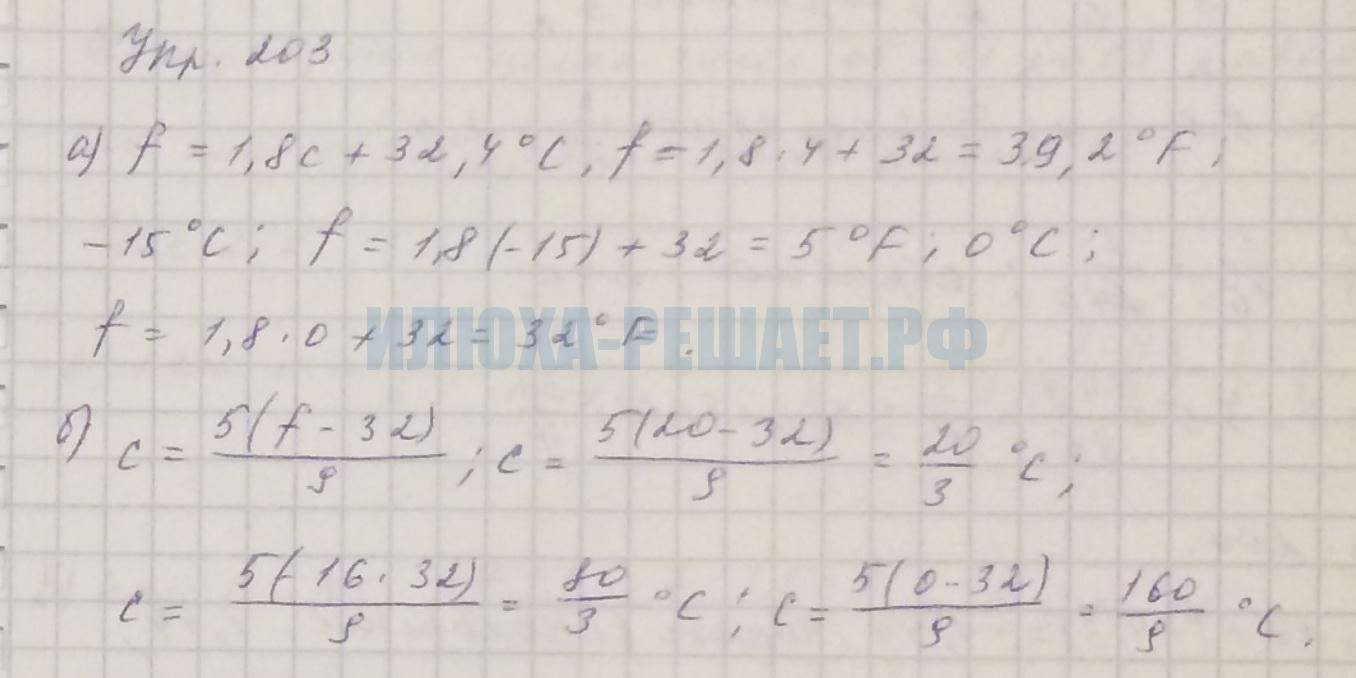 Упр. 203
а) f = 1,8c + 32, 4°C, f = 1,8 · 4 + 32 = 39,2°F;
-15°C; f = 1,8(-15) + 32 = 5°F; 0°C;
f = 1,8 · 0 + 32 = 32°F.
ИЛЮХА-РЕШАЕТ.РФ
б) c = 5(f - 32)/9; c = 5(20 - 32)/9 = 20/3 °C;
c = 5(-16 · 32)/9 = 80/3 °C; c = 5(0 - 32)/9 = 160/9 °C.